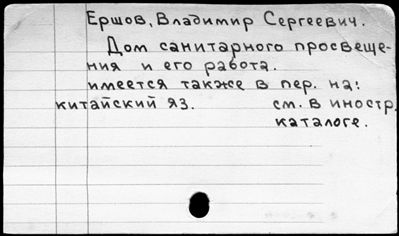 Ершов, Владимир Сергеевич.
Дом санитарного просвеще-
ния и его работа.
имеется также в пер. на:
китайский яз. см. в иностр.
каталоге.